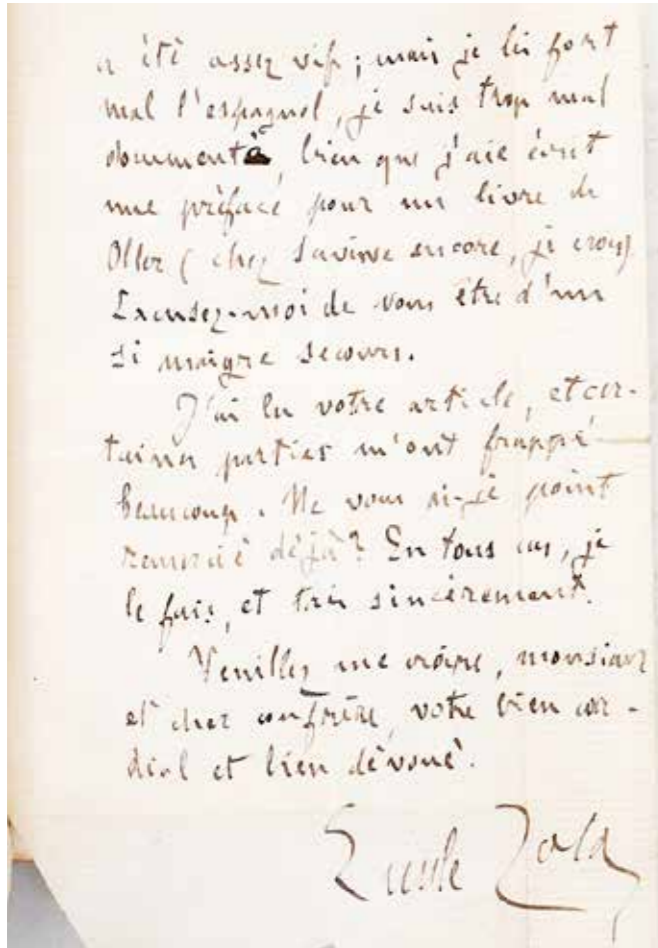 a été assez vif ; mais je lis fort
mal l'espagnol, je suis trop mal
documenté, bien que j'aie écrit
une préface pour un livre de
Oller ( chez Savine encore, je crois).
Excusez-moi de vous être d'un
si maigre secours.
J'ai lu votre article, et cer-
taines parties m'ont frappé
beaucoup. Ne vous ai-je point
remercié déjà ? En tous cas, je
le fais, et très sincèrement.
Veuillez me croire, monsieur
et cher confrère, votre bien cor-
dial et bien dévoué.
Emile Zola